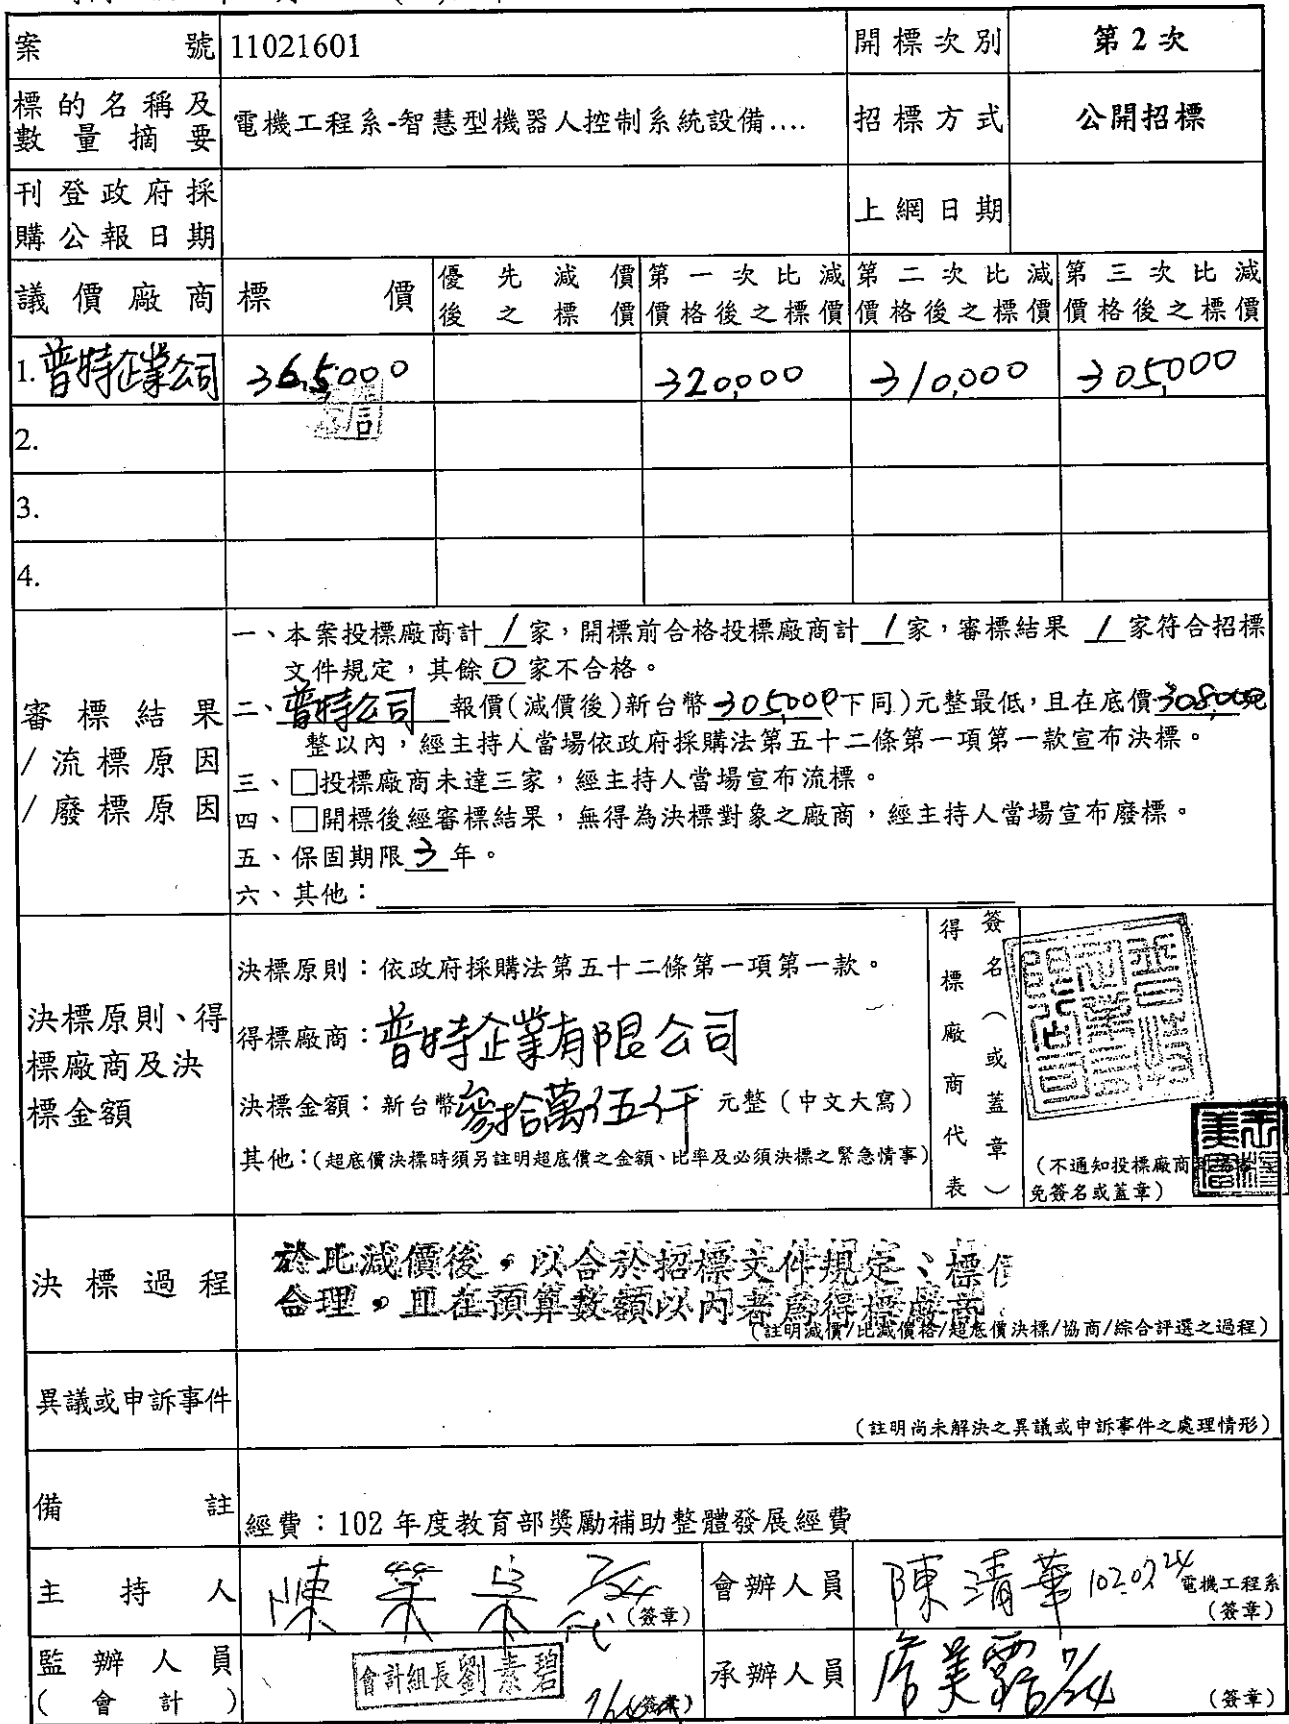 案號 11021601 開標次別 第2次
標的名稱及數量摘要 電機工程系-智慧型機器人控制系統設備.... 招標方式 公開招標
刊登政府採購公報日期 上網日期
議價廠商 標價 優先減價後之標價 第一次比減價格後之標價 第二次比減價格後之標價 第三次比減價格後之標價
1. 普特企業公司 365,000 320,000 310,000 305,000
2.
3.
4.
審標結果/流標原因/廢標原因
一、本案投標廠商計 1 家，開標前合格投標廠商計 1 家，審標結果 1 家符合招標
文件規定，其餘 0 家不合格。
二、普特公司 報價(減價後)新台幣 305,000(下同)元整最低，且在底價 308,000元
整以內，經主持人當場依政府採購法第五十二條第一項第一款宣布決標。
三、□投標廠商未達三家，經主持人當場宣布流標。
四、□開標後經審標結果，無得為決標對象之廠商，經主持人當場宣布廢標。
五、保固期限 3 年。
六、其他：
決標原則、得標廠商及決標金額
決標原則：依政府採購法第五十二條第一項第一款。
得標廠商：普特企業有限公司
決標金額：新台幣參拾萬伍仟 元整（中文大寫）
其他：(超底價決標時須另註明超底價之金額、比率及必須決標之緊急情事)
得標廠商代表
簽名（或蓋章）
(不通知投標廠商
免簽名或蓋章)
決標過程
於比減價後，以合於招標文件規定、標價
合理，且在預算數額以內者為得標廠商
(註明減價/比減價格/超底價決標/協商/綜合評選之過程)
異議或申訴事件
(註明尚未解決之異議或申訴事件之處理情形)
備註 經費：102 年度教育部獎勵補助整體發展經費
主持人 陳 7/24 代 (簽章) 會辦人員 陳清華 102.07.24 電機工程系
(簽章)
監辦人員 會計組長劉素碧 (簽章) 承辦人員 7/24 (簽章)
(會計)